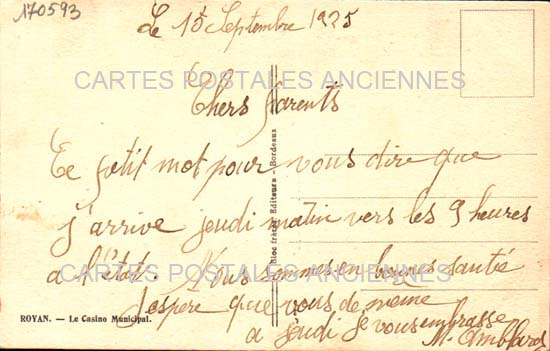 170593
Le 15 Septembre 1925
CARTES POSTALES ANCIENNES
Chers Parents
Ce petit mot pour vous dire que
j'arrive jeudi matin vers les 9 heures
a l'état. Nous sommes en bonnes santée
CARTES POSTALES ANCIENNES
J'espere que vous de meme
a jeudi je vous embrasse
M. Amblard
Bloc frères Editeurs - Bordeaux
ROYAN. - Le Casino Municipal.